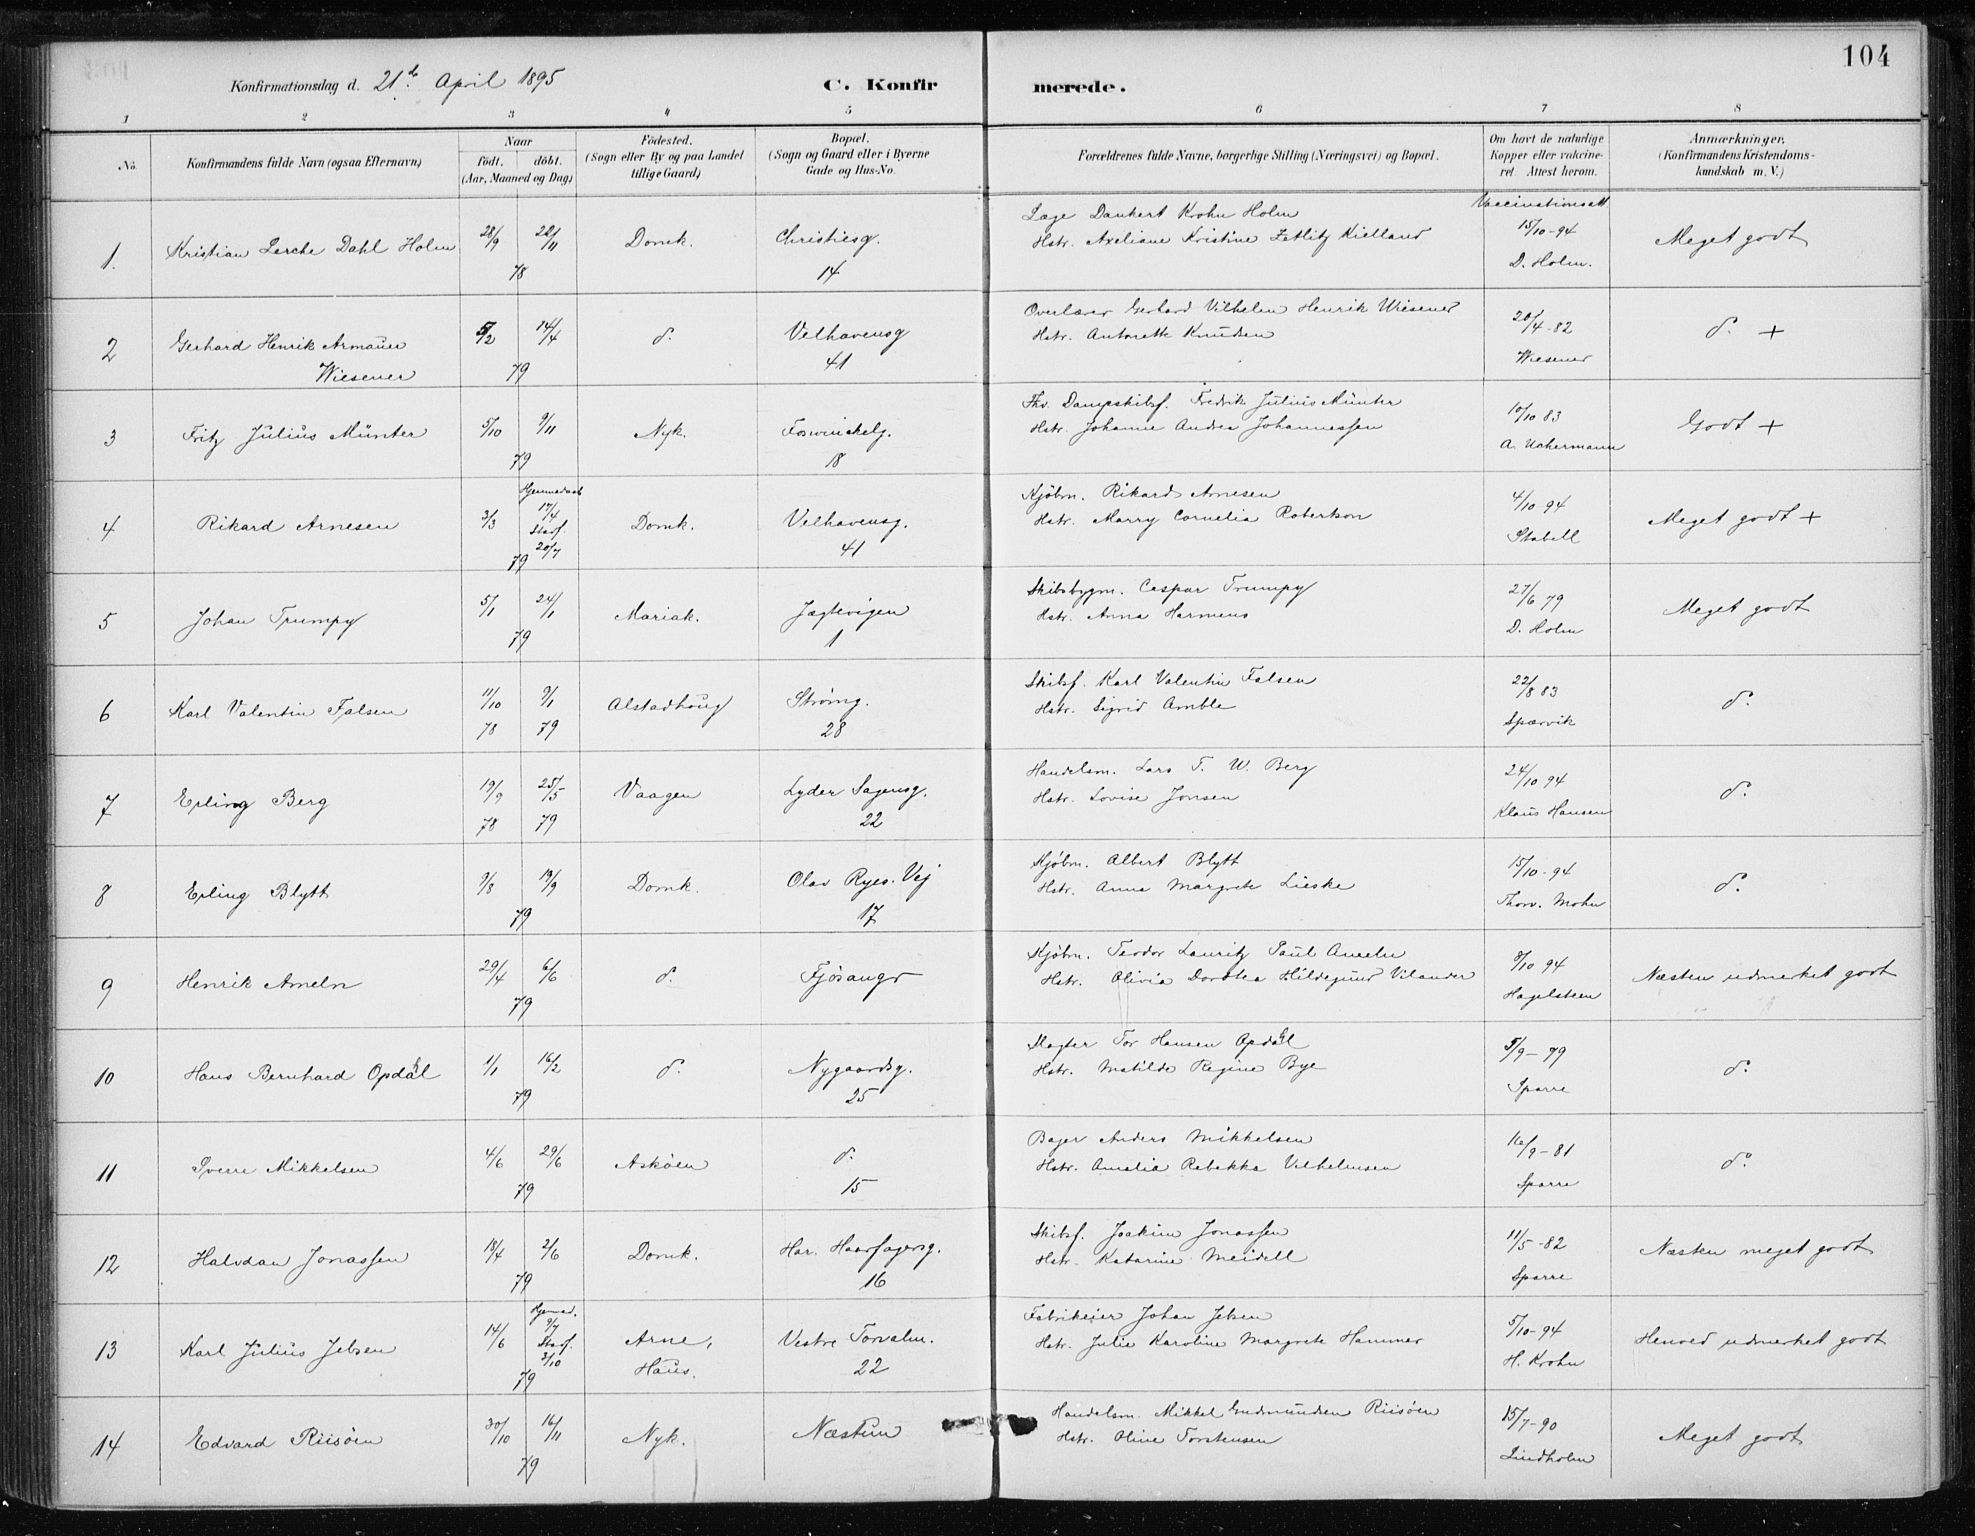 104
Konfirmationsdag d. 21de April 1895
C. Konfirmerede.
1 2 3 4 5 6 7 8
No.
Konfirmandens fulde Navn (ogsaa Efternavn)
Naar
født. døbt.
(Aar, Maaned og Dag)
Fødested.
(Sogn eller By og paa Landet
tillige Gaard)
Bopæl.
(Sogn og Gaard eller i Byerne
Gade og Hus-No.
Forældrenes fulde Navne, borgerlige Stilling (Næringsvei) og Bopæl.
Om havt de naturlige
Kopper eller vakcine-
ret. Attest herom.
Anmærkninger.
(Konfirmandens Kristendoms-
kundskab m. V.)
1. Kristian Lerche Dahl Holm 28/9 20/11 78 Domk. Christiesg. 14
Læge Dankert Krohn Holm
Hstr. Axeliane Kristine Zetlitz Kielland
Vaccinationsatt 15/10-94 D. Holm.
Meget godt
2 Gerhard Henrik Armauer Wiesener 5/2 14/4 79 do. Velhavensg 41
Overlærer Gerhard Vilhelm Henrik Wiesener
Hstr. Antonette Knudsen
20/4-82 Wiesener
do. +
3 Fritz Julius Münter 5/10 9/11 79 Nyk. Fosvinckelg. 18
Fhv. Dampskibsf. Fredrik Julius Münter
Hstr. Johanne Andrea Johannessen
10/10 83 A. Uchermann
Godt +
4 Rikard Arnesen 3/3 Hjemmedøbt 17/4 Stadf. 20/7 79 Domk. Velhavensg. 41
Kjøbm. Rikard Arnesen
Hstr. Marry Cornelia Robertson
4/10 94 Stabell
Meget godt +
5 Johan Trumpy 5/1 24/1 79 Mariak. Jægtevigen 1
Skibsbygm. Caspar Trumpy
Hstr. Anna Harmens
27/6 79 D. Holm
Meget godt
6 Karl Valentin Falsen 11/10 78 9/1 79 Alstadhoug Strømg. 28
Skibsf. Karl Valentin Falsen
Hstr. Sigrid Amble
22/8 83 Spærvik
do.
7 Erling Berg 19/9 78 25/5 79 Vaagen Lyder Sagensg. 22
Handelsm. Lars T. W. Berg
Hstr. Lovise Jonsen
24/10 94 Klaus Hansen
do.
8 Erling Blytt 9/8 19/9 79 Domk. Olav Ryes. Vej 17
Kjøbm. Albert Blytt
Hstr. Anna Margrete Lieske
15/10-94 Thorv. Mohn
do.
9 Henrik Ameln 29/4 6/6 79 do. Fjøsanger
Kjøbm. Teodor Lauritz Paul Ameln
Hstr. Olivia Dorotea Hildegund Vilander
8/10 94 Hagelsteen
Næsten udmerket godt
10 Hans Bernhard Opdal 1/1 16/2 79 do. Nygaardsg. 25
Slagter Tor Hansen Opdal
Hstr. Matilde Regine Bye
5/9-79 Sparre
do.
11 Sverre Mikkelsen 4/6 29/6 79 Askøen do. 15
Bager Anders Mikkelsen
Hstr. Amalia Rebekka Vilhelmsen
16/9-81 Sparre
do.
12 Halvdan Jonassen 18/4 2/6 79 Domk. Har. Haarfagersg. 16
Skibsf. Joakim Jonassen
Hstr. Katarine Meidell
11/5-82 Sparre
Næsten meget godt
13 Karl Julius Jebsen 14/6 Hjemmed. 9/7 Stadf. 3/10 79 Arne, Haus. Vestre Torvalm. 22
Fabrikeier Johan Jebsen
Hstr. Julie Karoline Margrete Hammer
5/10-94 H. Krohn
Henved udmerket godt
14 Edvard Riisøen 30/10 16/11 79 Nyk. Næstun
Handelsm. Mikkel Gudmundsen Riisøen
Hstr. Oline Torstensen
15/7-90 Lindholm
Meget godt